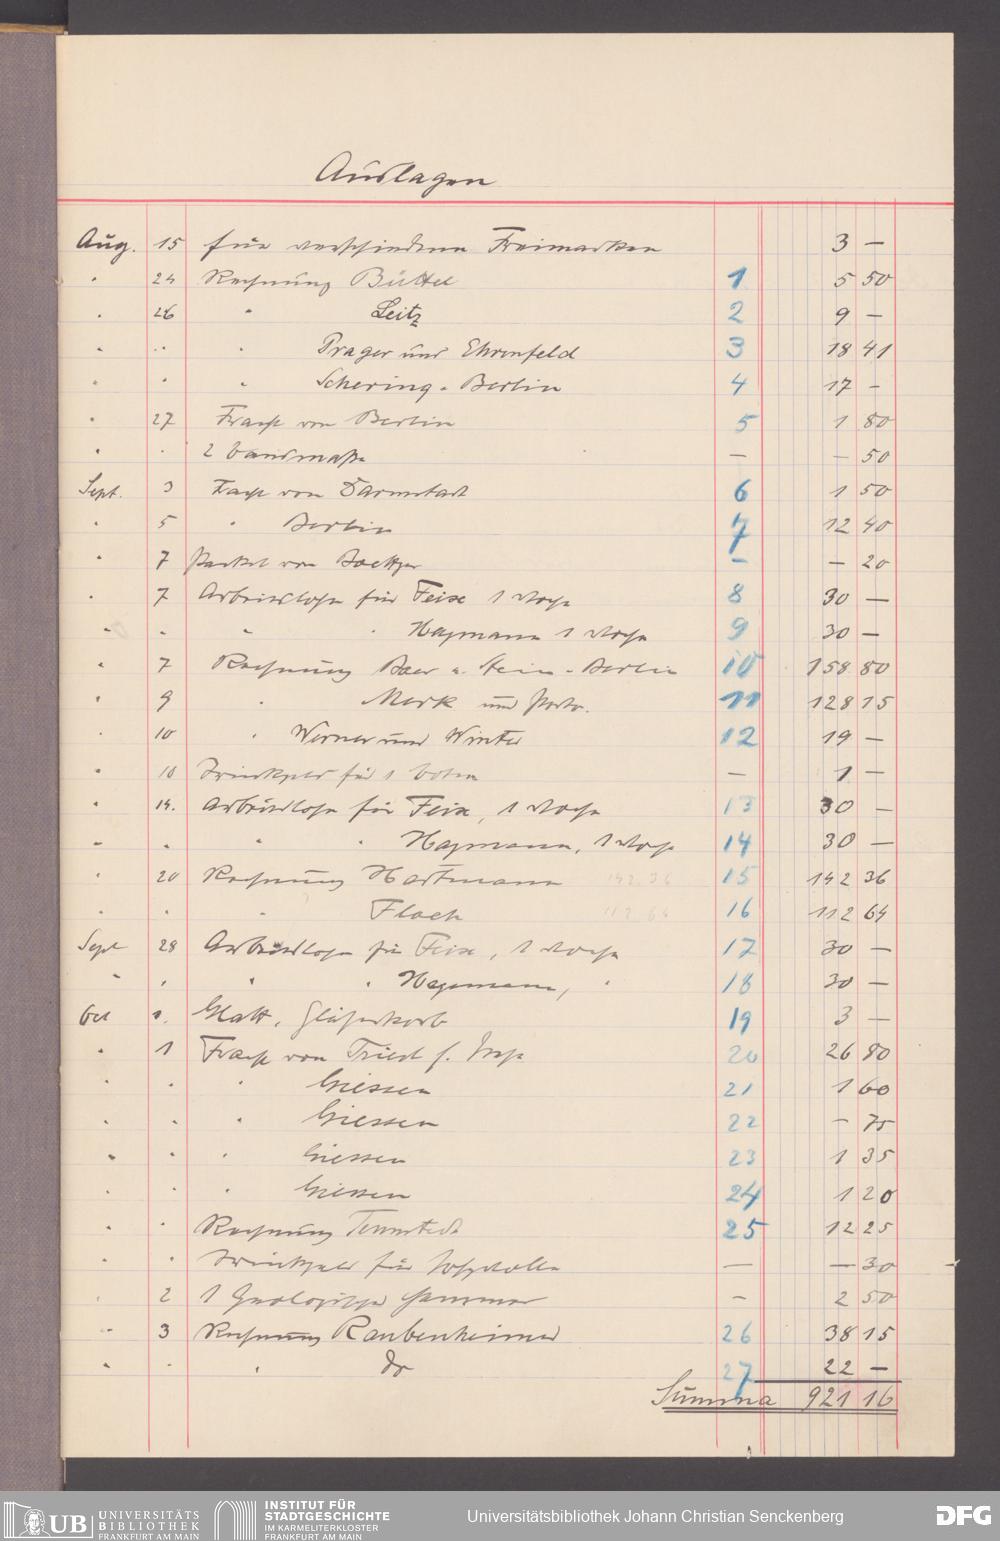 Auslagen
Aug. 15 für verschiedene Freimarken 3 —
" 24 Rechnung Büttel 1 5 50
" 26 " Leitz 2 9 —
" " " Prager und Ehrenfeld 3 18 41
" " " Schering - Berlin 4 17 -
" 27 Fracht von Berlin 5 1 80
" " 2 Bandmaße — — 50
Sept. 3 Fracht von Darmstadt 6 1 50
" 5 " Berlin 7 12 40
" 7 Packet von Boettger — — 20
" 7 Arbeitslohn für Feix 1 Woche 8 30 —
" " " " Haymann 1 Woche 9 30 —
" 7 Rechnung Baer u. Stein - Berlin 10 158 80
" 9 " Merk und Porto. 11 128 15
" 10 " Werner und Winter 12 19 —
" 10 Trinkgeld für 1 Boten — 1 —
" 14. Arbeitslohn für Feix, 1 Woche 13 30 —
" " " " Haymann, 1 Woche 14 30 —
" 20 Rechnung Hartmann 142 36 15 142 36
" " " Flach 112 64 16 112 64
Sept 28 Arbeitslohn für Feix, 1 Woche 17 30 —
" " " " Haymann, " 18 30 —
Oct 1. Glatt, 19 3 —
" 1 Fracht von Triest 20 26 80
" " " Giessen 21 1 60
" " " Giessen 22 — 75
" " " Giessen 23 1 35
" " " Giessen 24 1 20
" " Rechnung Tennstedt 25 12 25
" " Trinkgeld für — — 30
" 2 1 Geologischer Hammer — 2 50
" 3 Rechnung Raubenheimer 26 38 15
" " " do 27 22 —
Summa 921 16
UB UNIVERSITÄTS
BIBLIOTHEK
FRANKFURT AM MAIN
INSTITUT FÜR
STADTGESCHICHTE
IM KARMELITERKLOSTER
FRANKFURT AM MAIN
Universitätsbibliothek Johann Christian Senckenberg
DFG